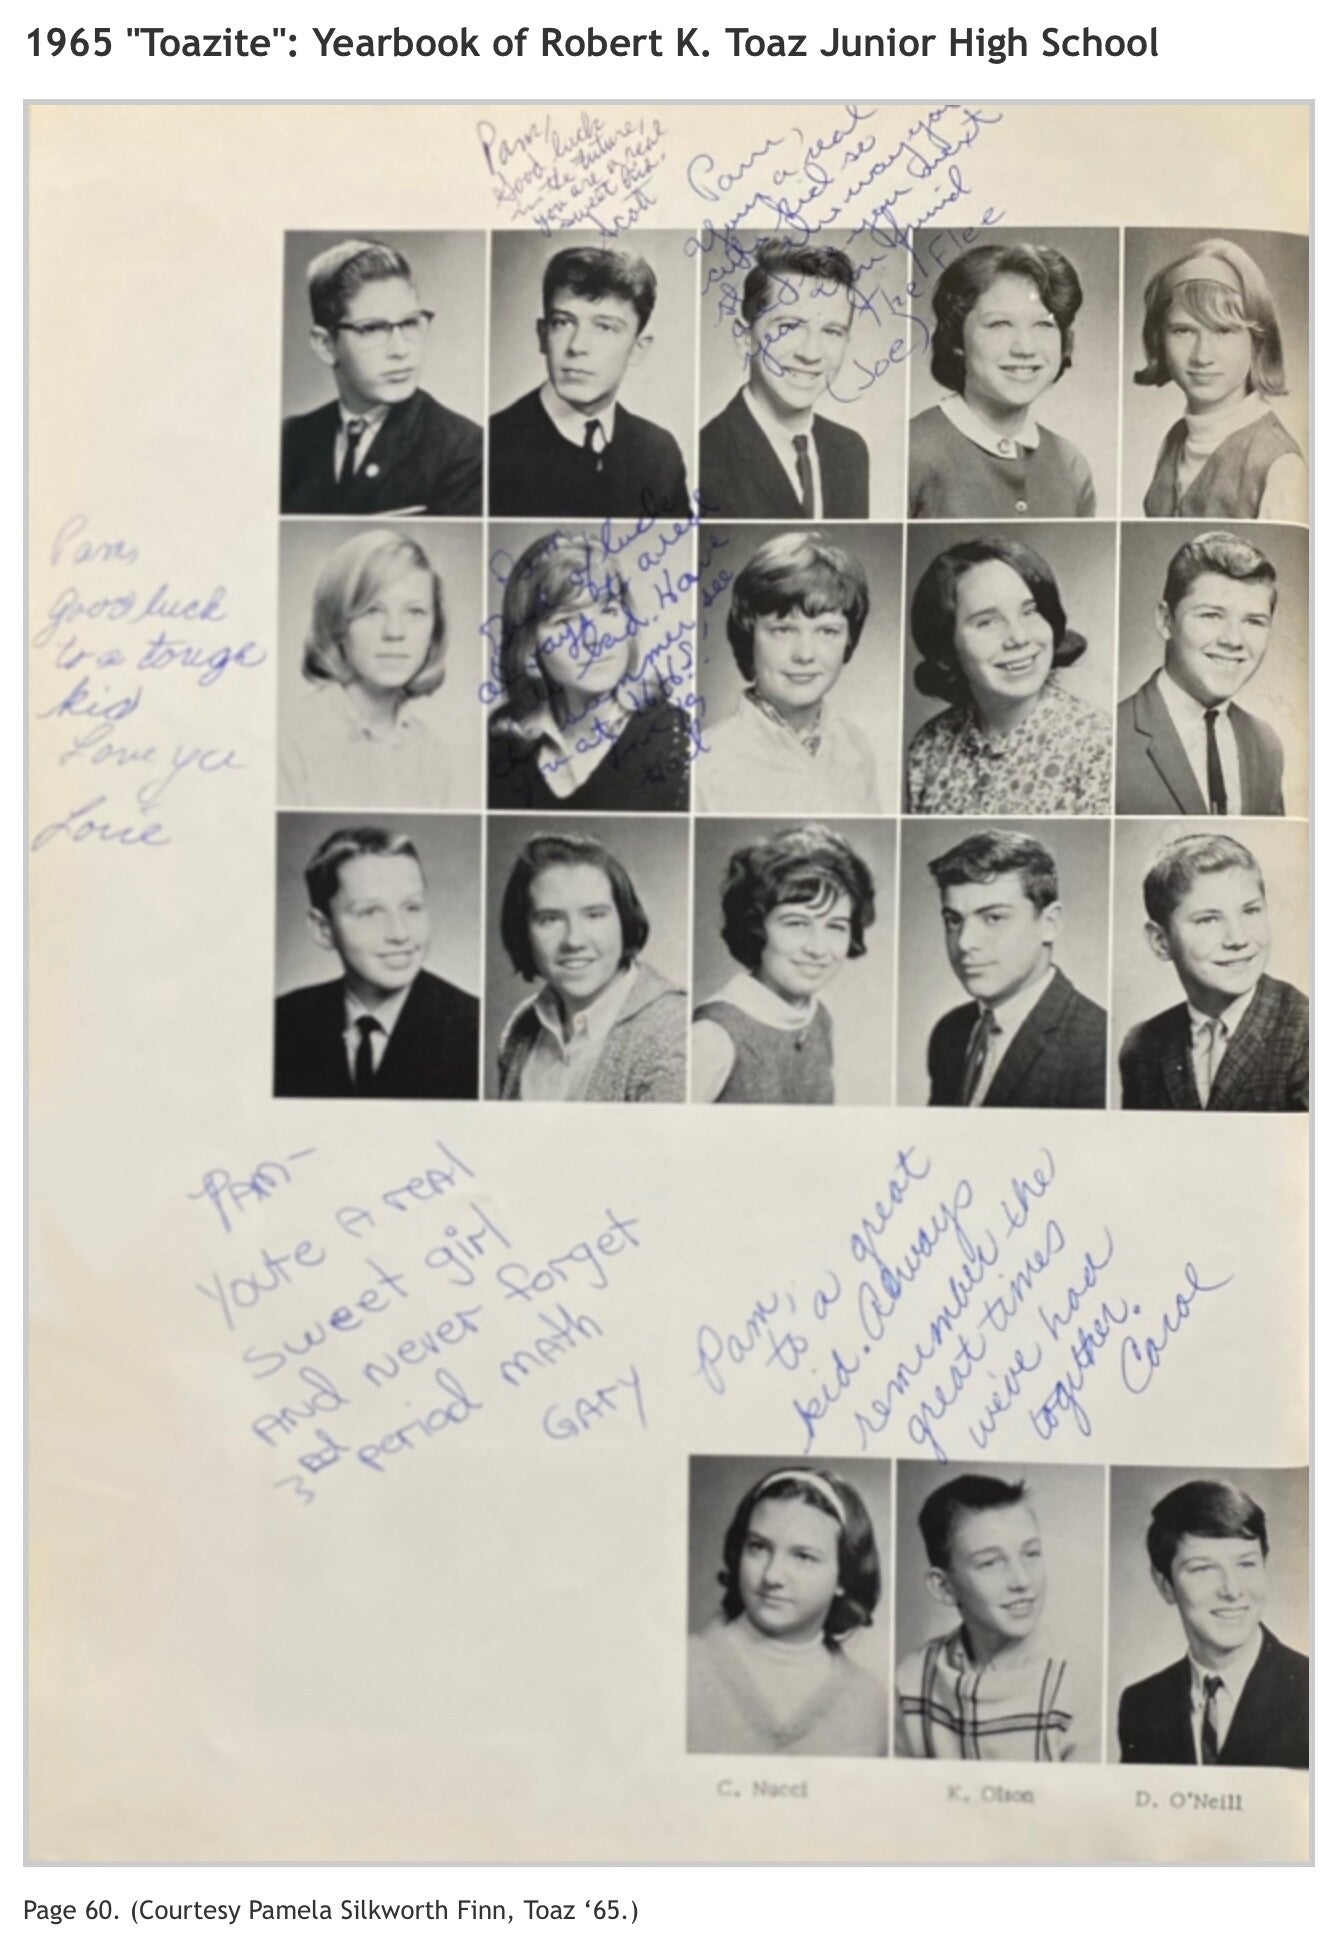 1965 "Toazite": Yearbook of Robert K. Toaz Junior High School
Pam,
Good luck
in the future,
you are a real
sweet kid.
Scott
Pam,
a real
kid so
the way you
next
year
(Joe)
Pam,
Good luck
to a touge
kid
Love ya
Lorie
Pam,
luck
always to a real
kid. Have
summer, see
at
PAM-
You're A real
sweet girl
AND never forget
3rd period math
GARY
Pam,
to a great
kid. Always
remember the
great times
we've had
together.
Carol
C. Nucci
K. Olson
D. O'Neill
Page 60. (Courtesy Pamela Silkworth Finn, Toaz ‘65.)